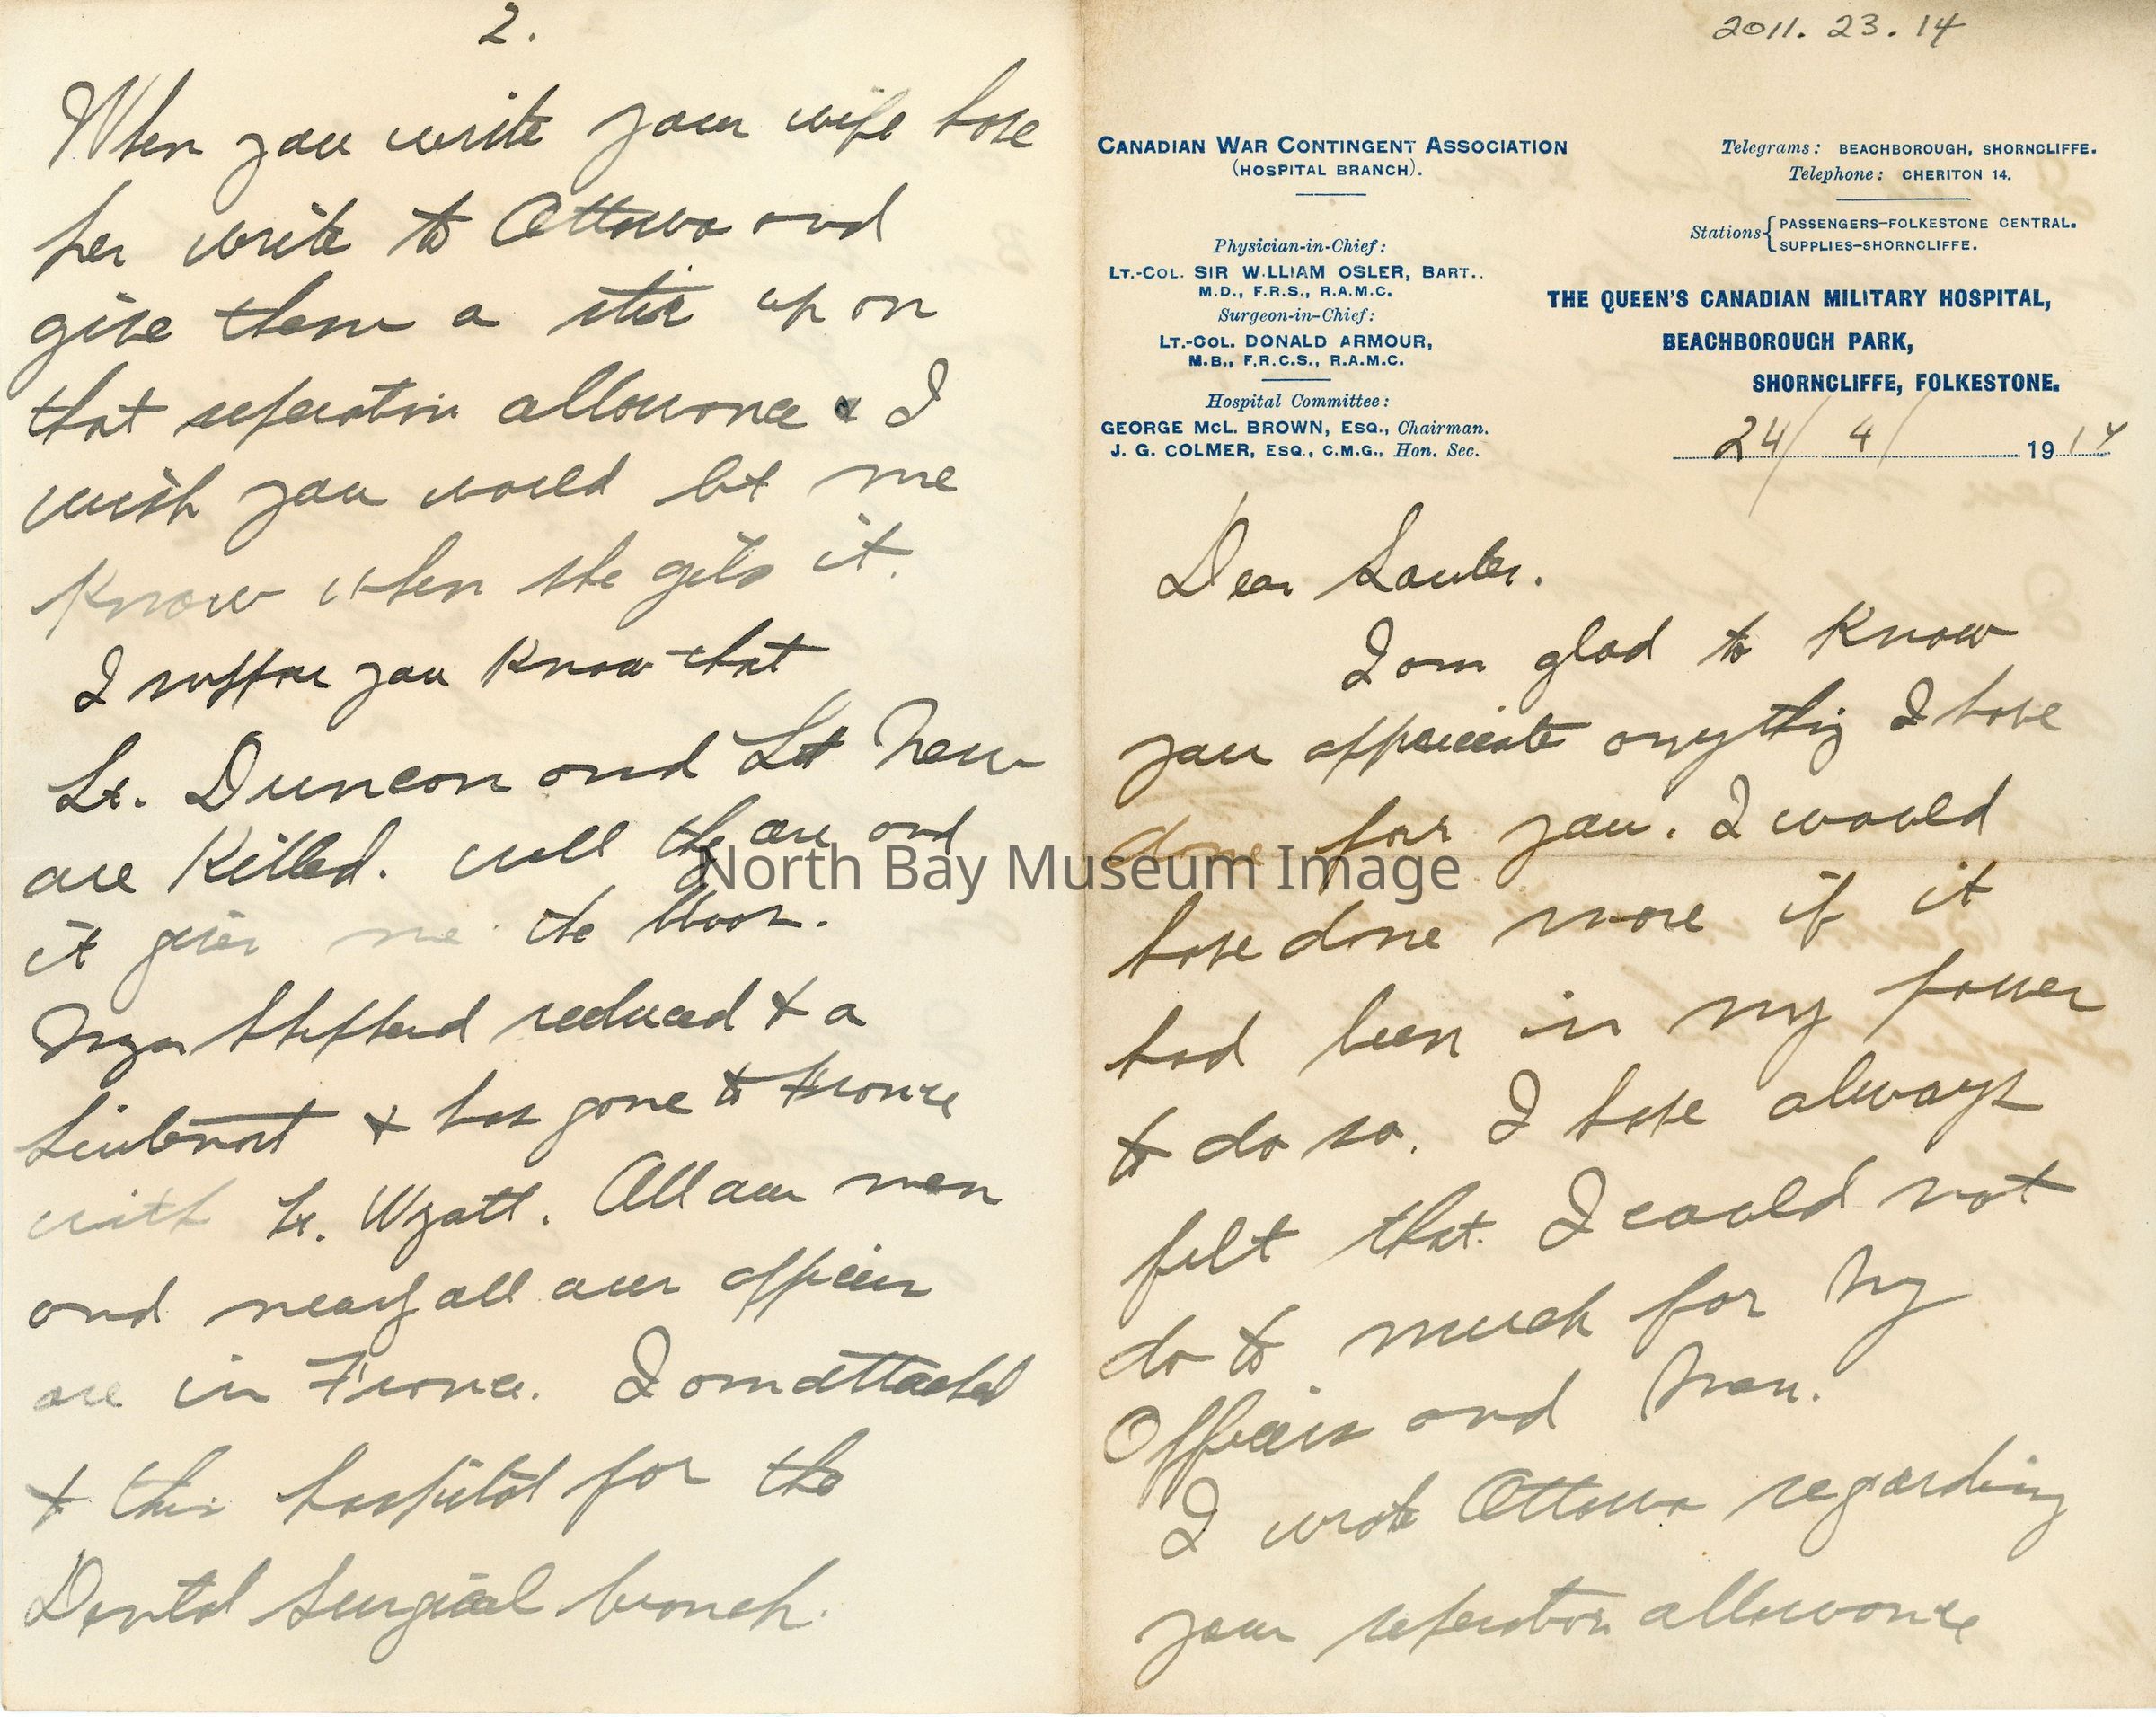 2011. 23. 14
CANADIAN WAR CONTINGENT ASSOCIATION
(HOSPITAL BRANCH).
Physician-in-Chief:
LT.-COL. SIR W.LLIAM OSLER, BART..
M.D., F.R.S., R.A.M.C.
Surgeon-in-Chief:
LT.-COL. DONALD ARMOUR,
M.B., F.R.C.S., R.A.M.C.
Hospital Committee:
GEORGE MCL. BROWN, ESQ., Chairman.
J. G. COLMER, ESQ., C.M.G., Hon. Sec.
Telegrams: BEACHBOROUGH, SHORNCLIFFE.
Telephone: CHERITON 14.
Stations { PASSENGERS–FOLKESTONE CENTRAL.
SUPPLIES–SHORNCLIFFE.
THE QUEEN'S CANADIAN MILITARY HOSPITAL,
BEACHBOROUGH PARK,
SHORNCLIFFE, FOLKESTONE.
24/ 4/ 1917
Dear
I am glad to know
you appreciate anything I have
done for you. I would
have done more if it
had been in my power
to do so. I have always
felt that I could not
do to much for my
Officers and Men.
I wrote Ottawa regarding
your seperation allowance
2.
When you write your wife have
her write to Ottawa and
give them a stir up on
that seperation allowance & I
wish you would let me
know when she gets it.
I suppose you know that
Lt. Duncan and Lt New
are killed. well they are and
it gives me the
Major Sheppard reduced to a
Lieutenant & has gone to France
with Lt. Wyatt. All our men
and nearly all our officers
are in France. I am attached
to this hospital for the
Dental Surgical branch.
North Bay Museum Image